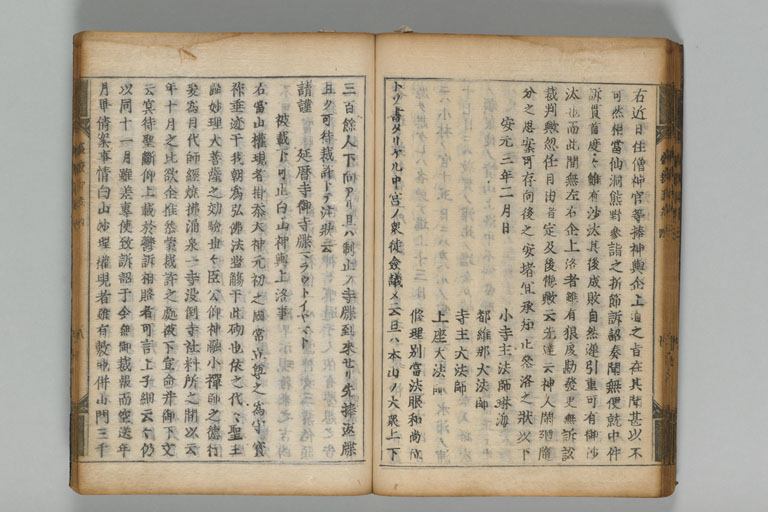 右近日住僧神官等捧神輿企上道之旨在其聞甚以不
可然相當仙洞熊野參詣之折節訴詔奏聞無便就中件
訴貫首度々雖有沙汰其後成敗自然遅引重可有御沙
汰也而此間無左右企上洛者雖有狼戾勘發更無訴訟
裁判歟忽任自由旨定及後悔歟云先達云神人開
分之思案可存向後之安堵但承知止參洛之狀以下
安元三年二月日
小寺主法師琳海
都維那大法師
寺主大法師
上座大法師
修理別當法眼和尚位
トソ書タリケル中宮ノ衆徒僉議メ云旦ハ本山ノ大衆上下
三百餘人下向アリ旦ハ制止ノ寺牒到來セリ先捧返牒
且ク可待裁許トテ注狀云
請謹 延曆寺御寺牒
被載下可止白山神輿上洛事
右當山權現者掛忝大神元初之國常立尊之為守寶
祚垂迹于我朝為弘佛法並觴于此砌也依之代々聖主
臨妙理大菩薩之効驗世々臣公仰神融小禪師之德行
爰為目代師經燒拂涌泉一寺没倒寺社料所之間以去
年十月之比欲企推參蒙裁許之處被下宣命并御下文
云冥待聖斷仰上載於鬱訴相貽者可言上子細云々仍
以同十一月雖差專使致訴詔于今無御裁報而空送年
月畢倩案事情白山妙理權現者雖有敷地併山門三千